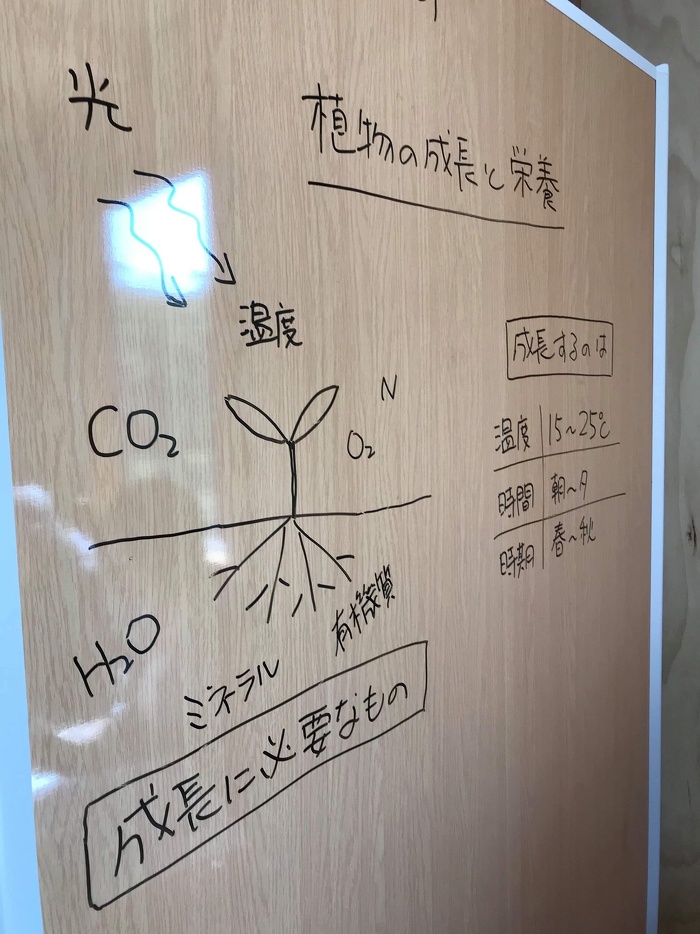 植物の成長と栄養
光
温度
CO₂
N
O₂
H₂O
ミネラル
有機質
成長に必要なもの
成長するのは
温度 15~25℃
時間 朝~夕
時期 春~秋